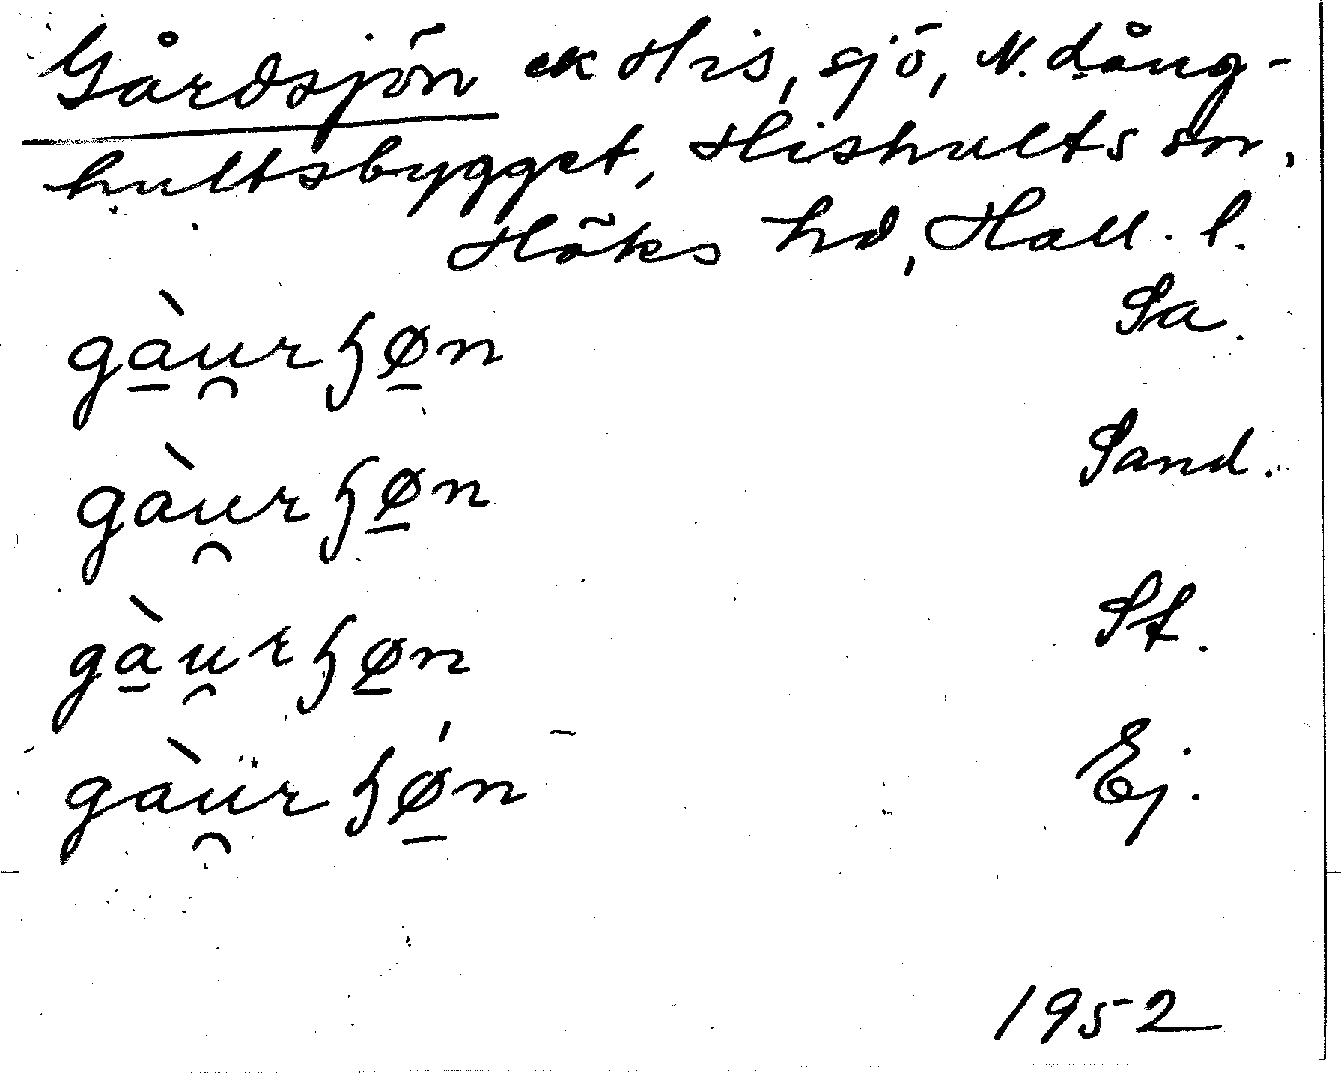 Gårdsjön ek His, sjö, N. Lång-
hultsbygget, Hishults sn,
Höks hd, Hall. l.
gàu̯rɧøn Sa.
gàu̯rɧøn Sand.
gàu̯rɧøn St.
gàu̯rɧǿn Ej.
1952